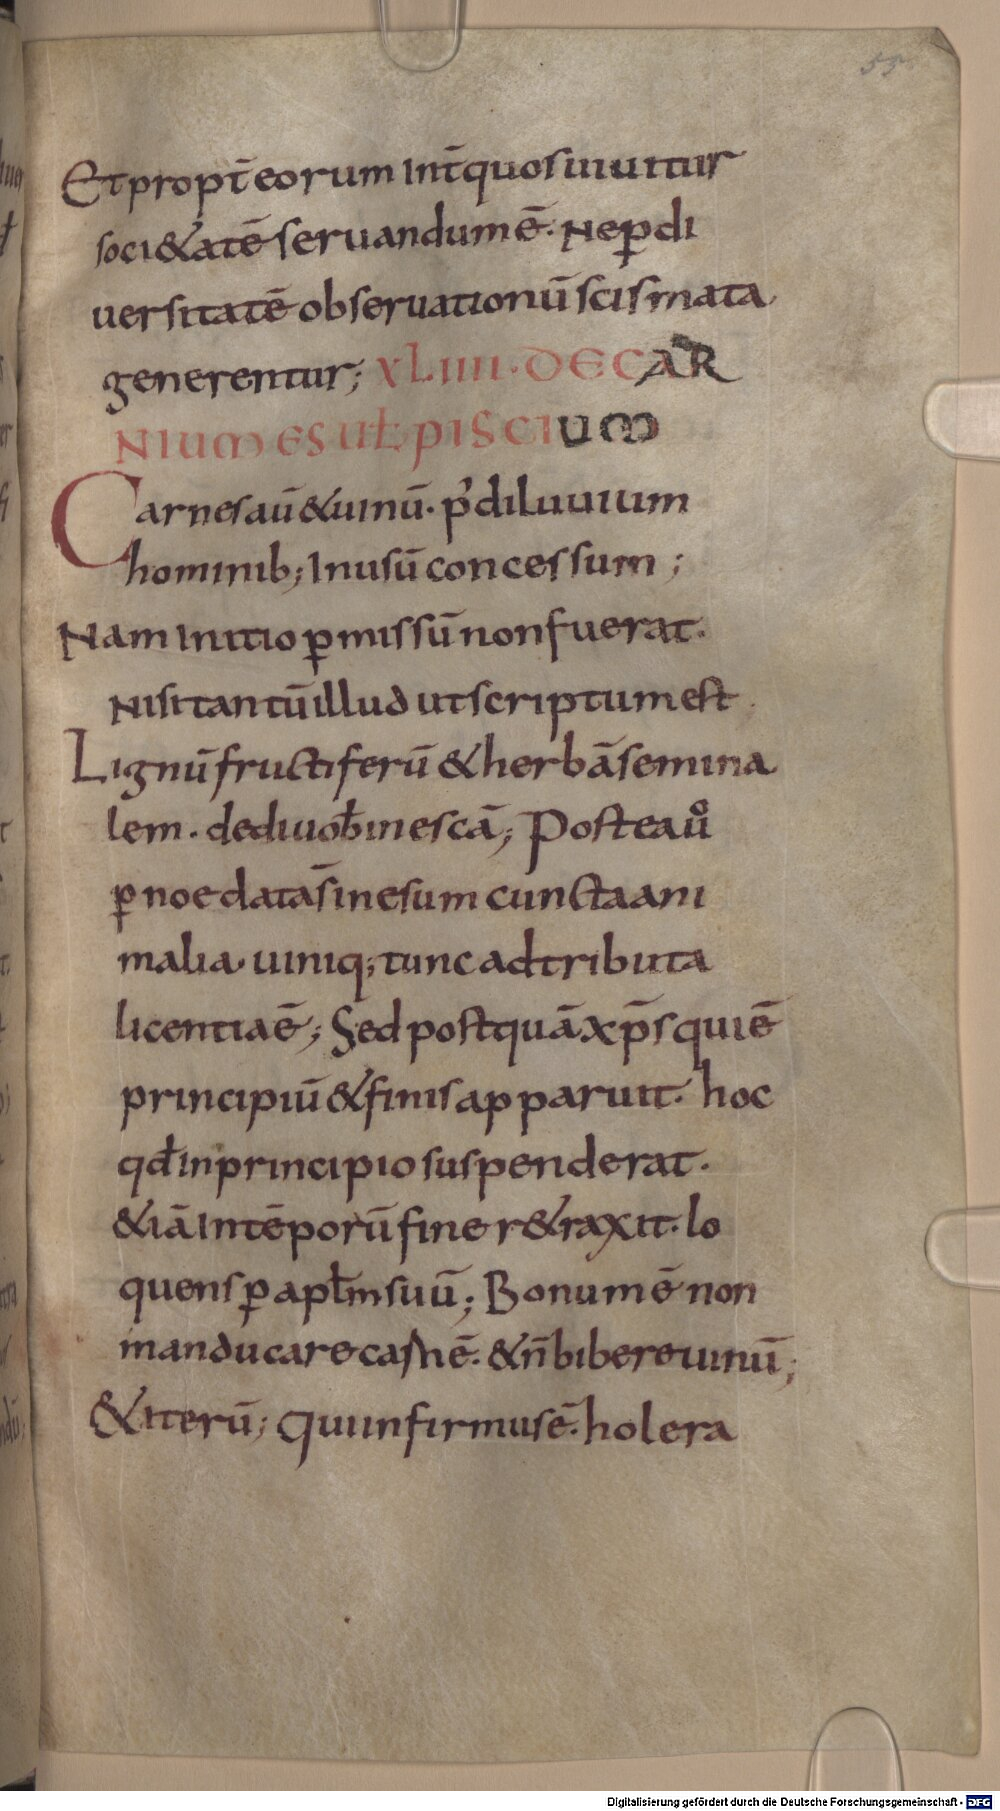 55
Et propt̄ eorum int̄ quos uiuitur
soci&atē seruandum ē. Ne ꝑ di
uersitatē obseruationū scismata
generentur; XLIIII. DE CAR
NIUM ESU ł PISCIUM
Carnes aū & uinū. p' diluuium
hominib; in usū concessum;
Nam initio ꝑmissū non fuerat.
Nisi tantū illud ut scriptum est
Lignū fructiferū & herbā semina
lem. dedi uob̄ in escā; Postea uͦ
ꝑ noe data s̄ in esum cuncta ani
malia. uiniq; tunc adtributa
licentia ē; Sed postquā xp̄s qui ē
principiū & finis apparuit. hoc
qđ in principio suspenderat.
& iā in tēporū fine r&raxit. lo
quens ꝑ apłm suū; Bonum ē non
manducare carnē. & n̄ bibere uinū;
& iterū; Qui infirmus ē. holera
Digitalisierung gefördert durch die Deutsche Forschungsgemeinschaft - DFG